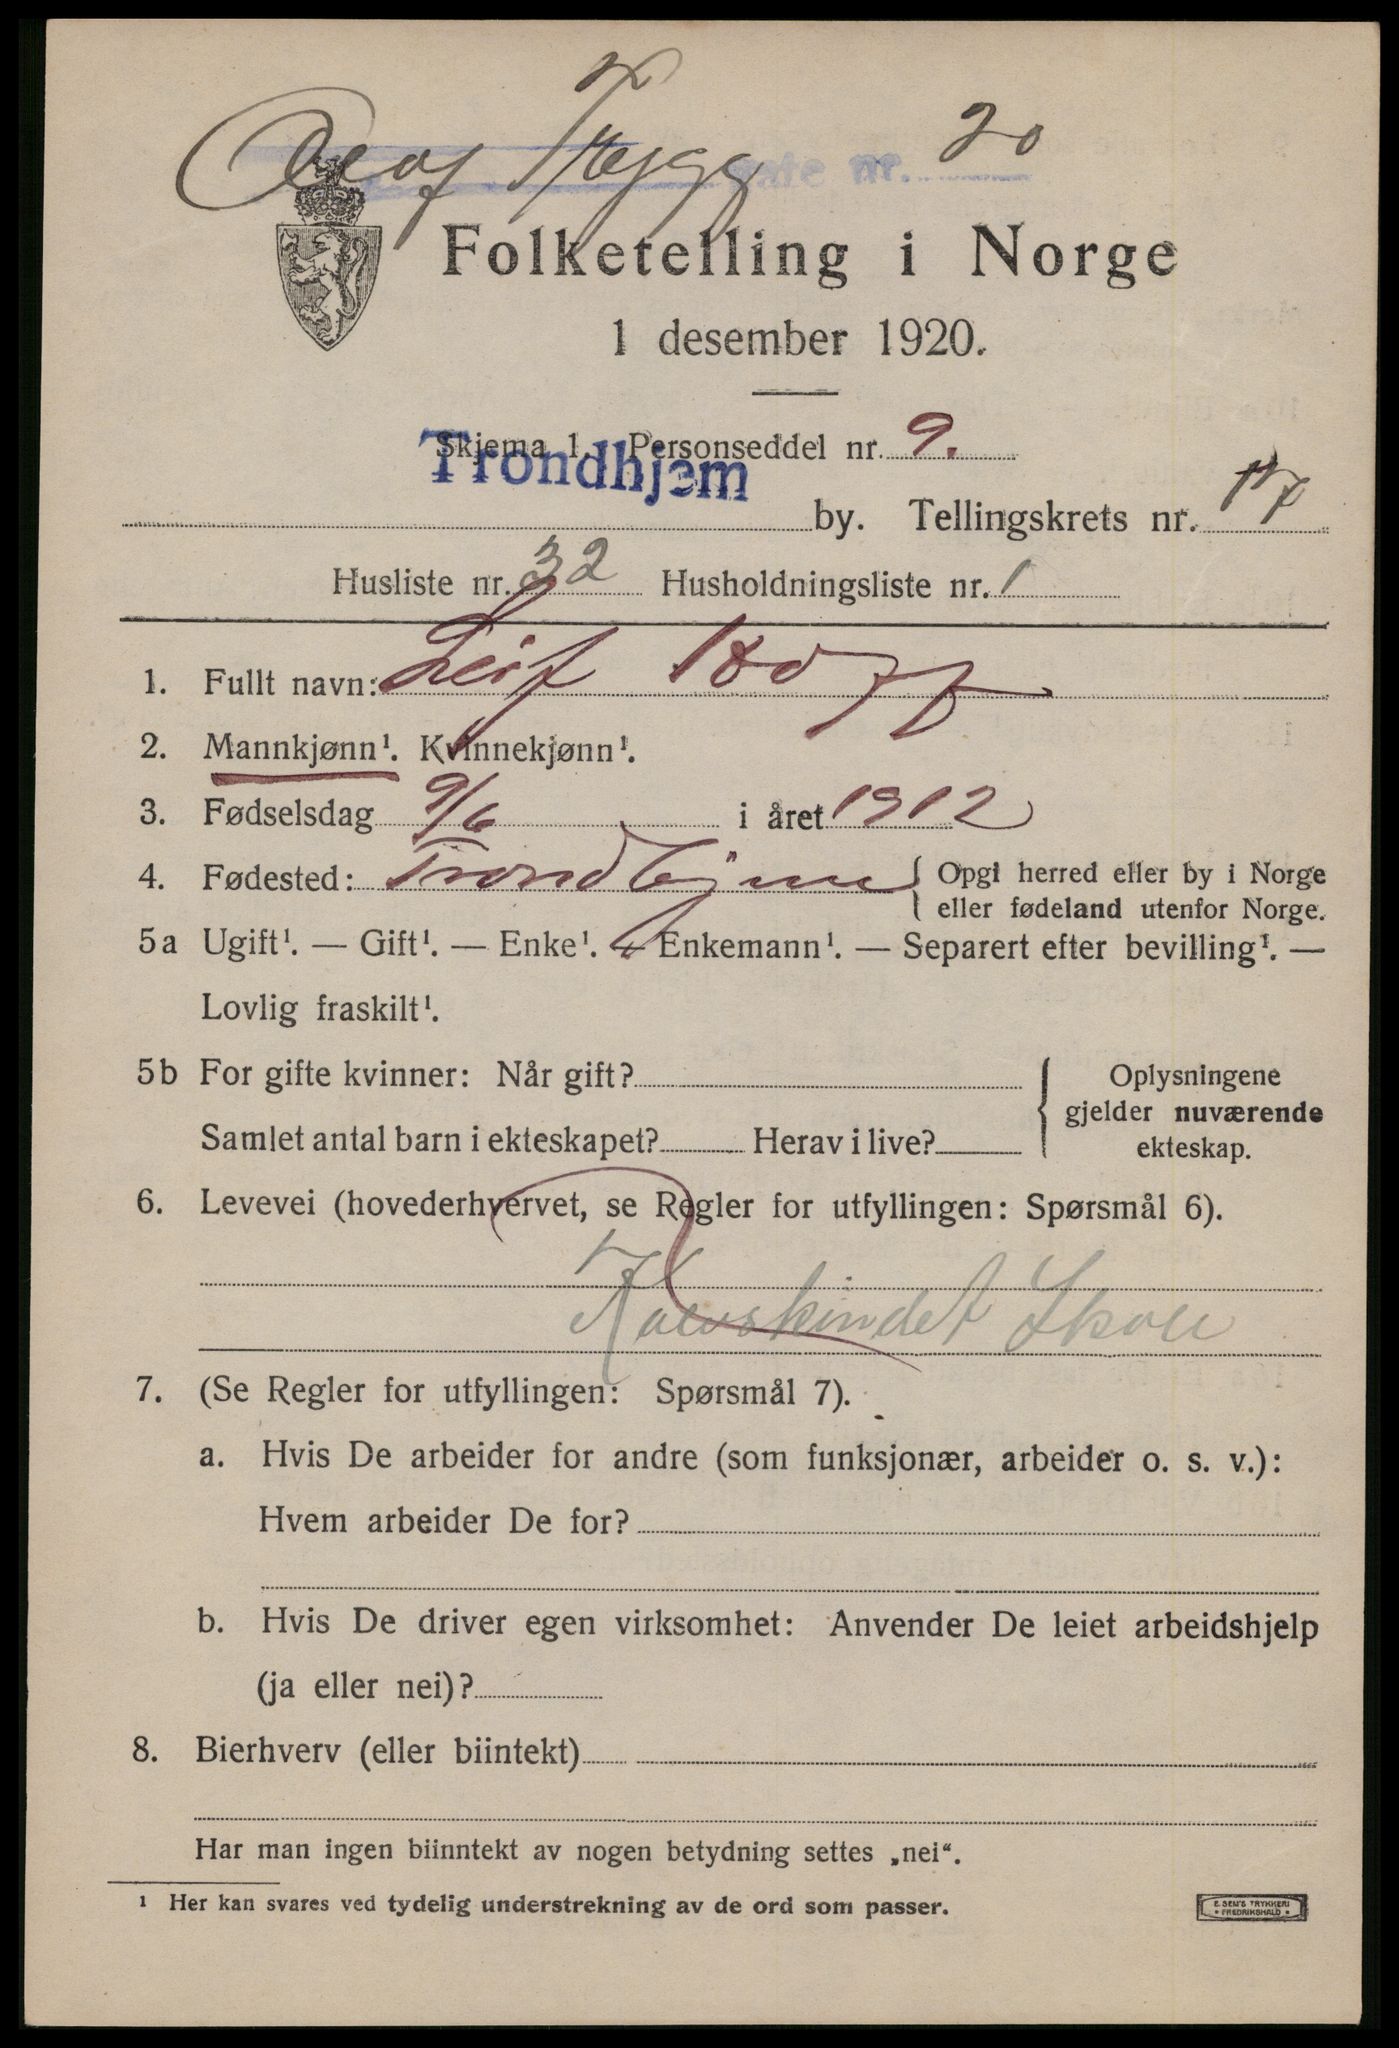 Olaf Trygg gate nr. 20
Folketelling i Norge
1 desember 1920.
Skjema 1. Personseddel nr. 9.
Trondhjem by. Tellingskrets nr. 17
Husliste nr. 32 Husholdningsliste nr. 1
1. Fullt navn: Leif
2. Mannkjønn¹. Kvinnekjønn¹.
3. Fødselsdag 9/6 i året 1912
4. Fødested: Trondhjem { Opgi herred eller by i Norge
eller fødeland utenfor Norge.
5a Ugift¹. — Gift¹. — Enke¹. — Enkemann¹. — Separert efter bevilling¹. —
Lovlig fraskilt¹.
5b For gifte kvinner: Når gift? { Oplysningene
gjelder nuværende
Samlet antal barn i ekteskapet? Herav i live? ekteskap.
6. Levevei (hovederhvervet, se Regler for utfyllingen: Spørsmål 6).
Kalvskindet Skole
7. (Se Regler for utfyllingen: Spørsmål 7).
a. Hvis De arbeider for andre (som funksjonær, arbeider o. s. v.):
Hvem arbeider De for?
b. Hvis De driver egen virksomhet: Anvender De leiet arbeidshjelp
(ja eller nei)?
8. Bierhverv (eller biintekt)
Har man ingen biinntekt av nogen betydning settes „nei“.
¹ Her kan svares ved tydelig understrekning av de ord som passer.
E. SEM'S TRYKKERI
• FREDRIKSHALD •